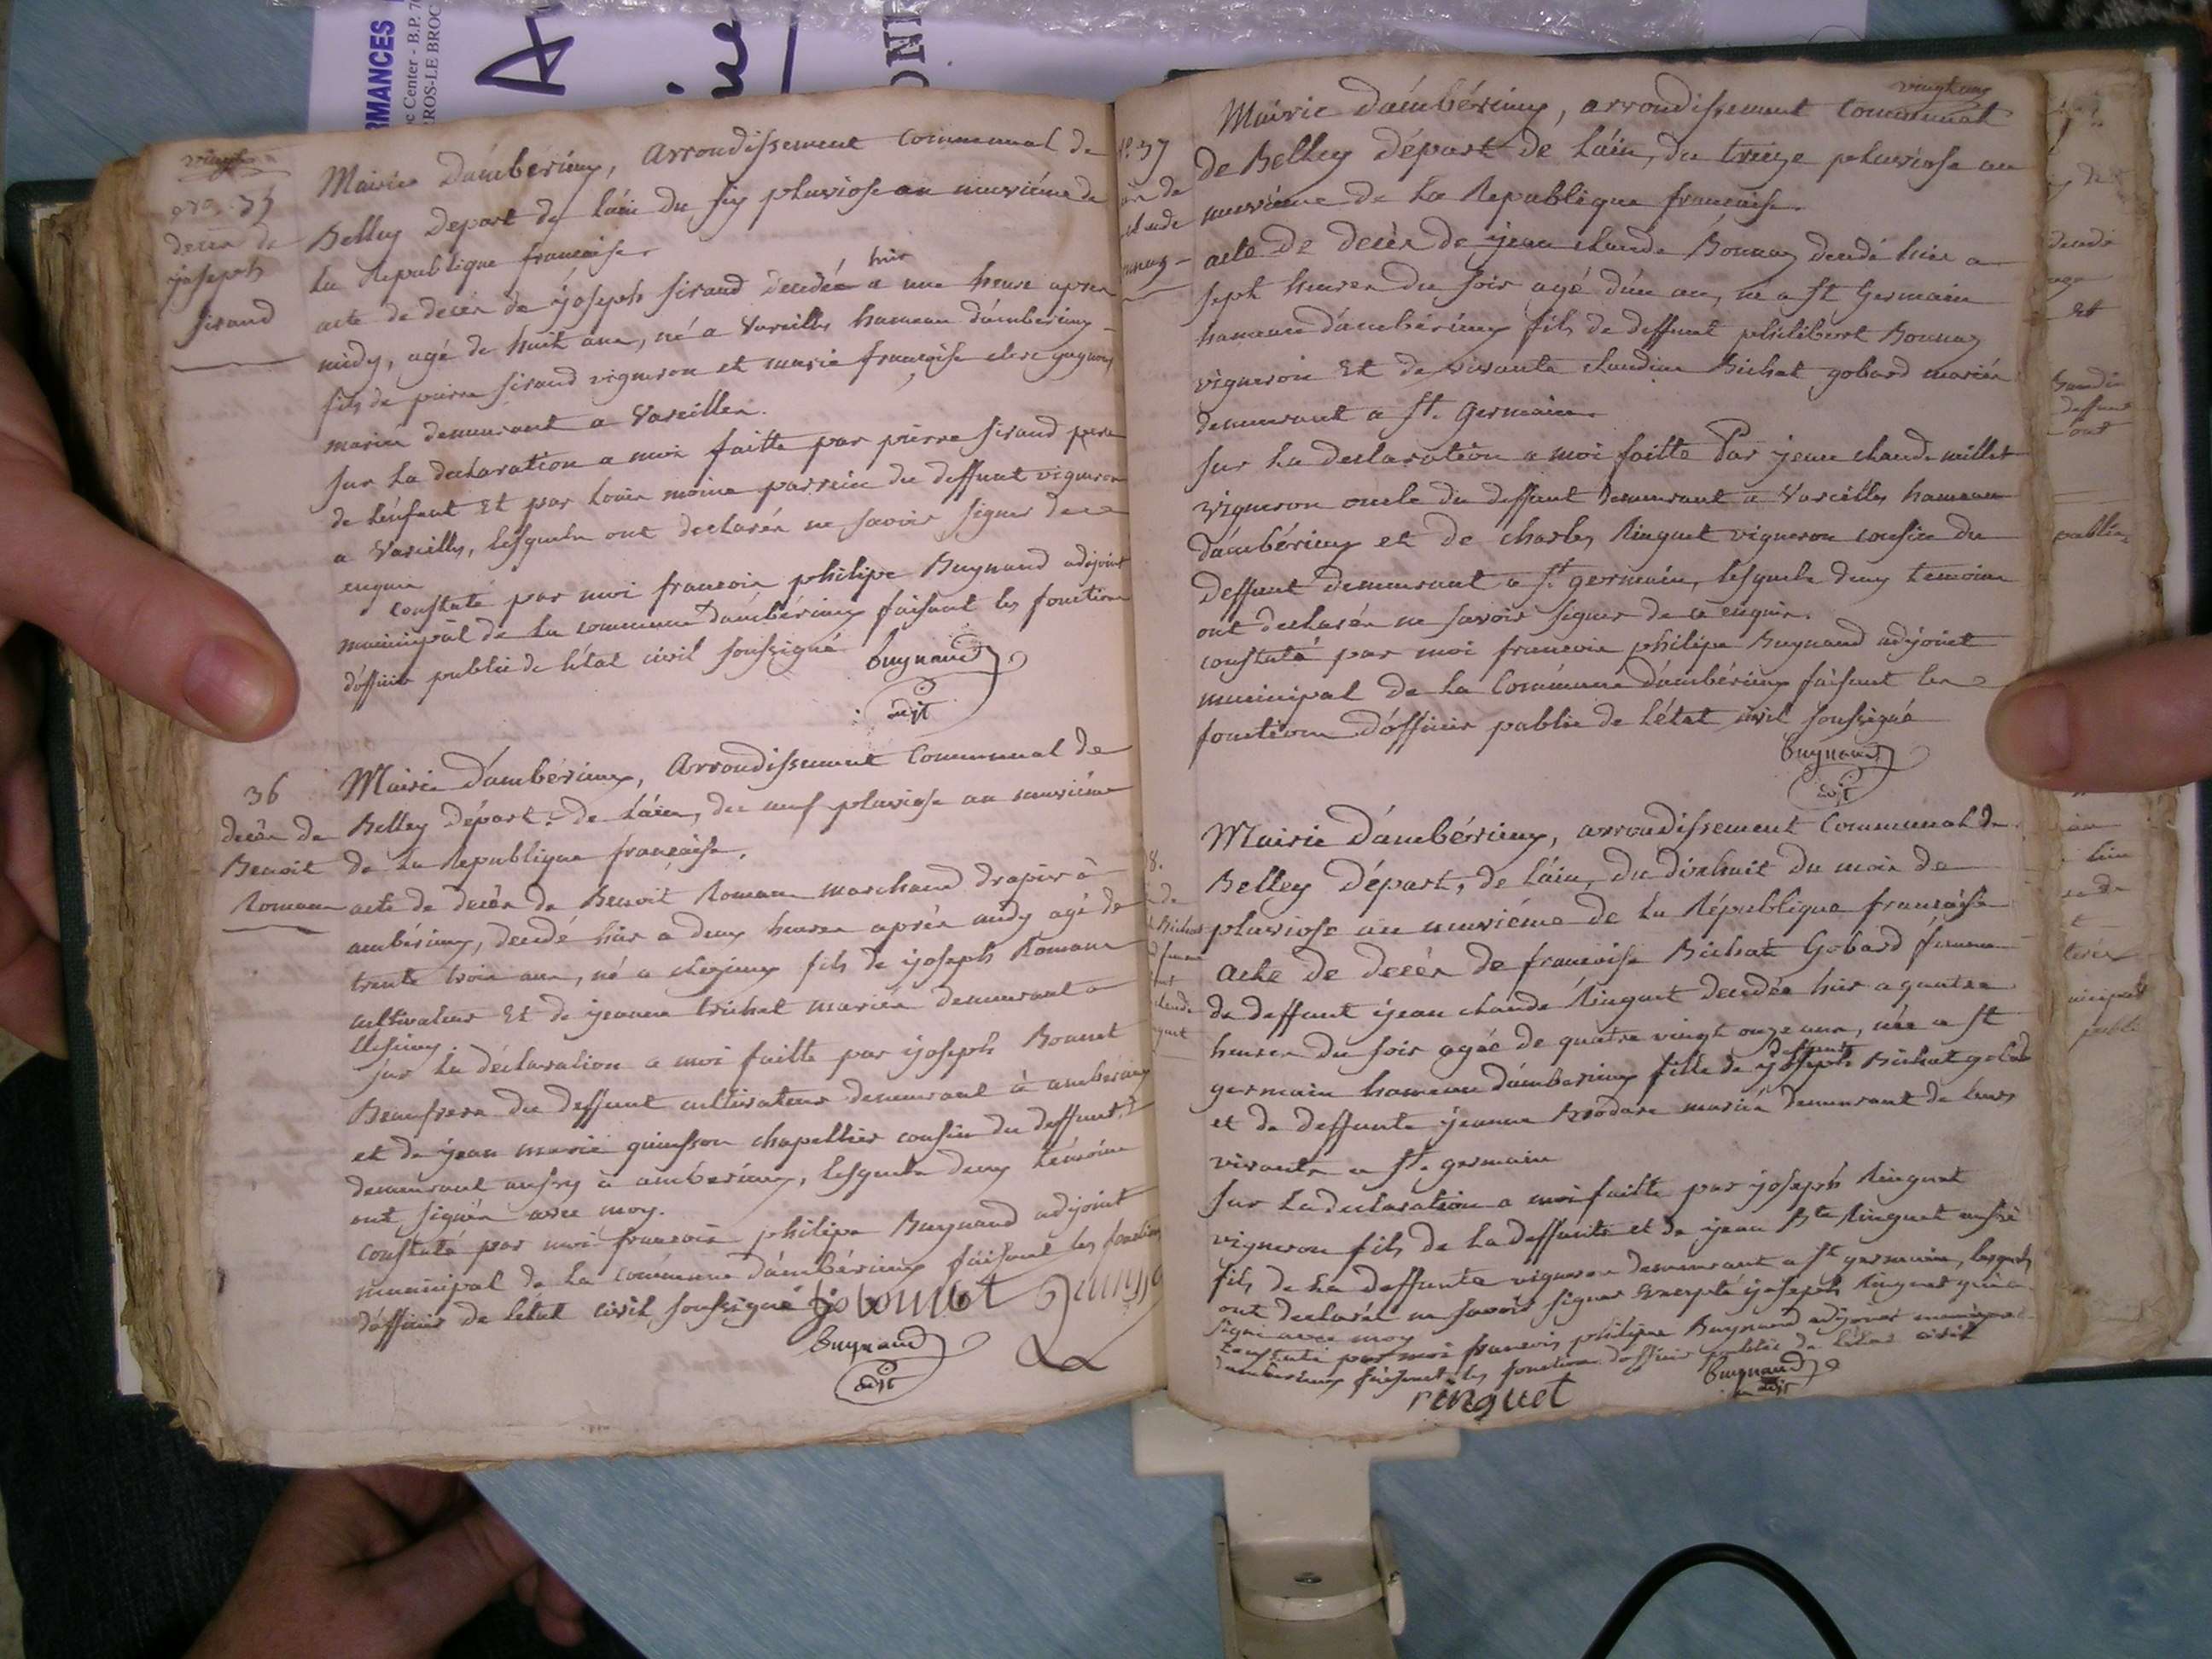 RMANCES
c Center - B.P. 70
ROS-LE BROC
vingt
No. 35
decer de
joseph
sirand
Mairie d'amberieux, arrondissement Communal de
Belley Depart de l'ain du six pluviose an neuvième de
la Republique francaise.
acte de decer de joseph sirand decedé hier a une heure apres
midy, agé de huit ans, né a Vareilles hameau d'amberieux
fils de pierre sirand vigneron et marie françoise
mariés demeurant a Vareilles.
sur la declaration a moi faitte par pierre sirand pere
de l'enfant et par Louis moine parrein du deffunt vigneron
a Vareilles, lesquels ont declarés ne savoir signer de ce
enquis
constaté par moi francois philipe Buynand adjoint
municipal de la commune d'ambérieux faisant les fonctions
d'officier public de l'état civil soussigné
Buynand
adjt
36
decès de
Benoit
Romans
Mairie d'ambérieux, arrondissement Communal de
Belley Départ. de L'ain, du neuf pluviose an neuvième
de la Republique française.
acte de decès de Benoit Romans marchand drapier à
ambérieux, decedé hier a deux heures après midy agé de
trente trois ans, né a fils de joseph Romans
cultivateur Et de jeanne trichet mariés demeurant a
sur la déclaration a moi faitte par joseph Bonnet
Beaufrere du deffunt cultivateur demeurant à amberieux
et de jean marie quinsson chapellier cousin du deffunt,
demeurant aussy à amberieux, lesquels deux témoins
ont signés avec moy.
constaté par moi francois philipe Buynand adjoint
municipal de la commune d'ambérieux faisant les fonctions
d'officier de l'état civil soussigné
Buynand
adjt
vingt un
No. 37
Mairie d'ambérieux, arrondissement communal
de Belley départ de l'ain, du treize pluviose an
neuvième de la Republique française.
acte de decès de jean claude Bonnaz decedé hier a
sept heures du soir agé d'un an, né a St Germain
hameau d'ambérieux fils de deffunt philibert Bonnaz
vigneron Et de vivante claudine Bichat gobard mariés
demeurant a St. Germain.
sur la declaration a moi faitte Par jean claude millet
vigneron oncle du deffunt demeurant a Vareilles hameau
d'ambérieux et de charles Ringuet vigneron cousin du
deffunt demeurant a St germain, lesquels deux temoins
ont declarés ne savoir signer de ce enquis.
constaté par moi francois philipe Buynand adjoint
municipal de la Commune d'ambérieux faisant les
fonctions d'officier public de l'état civil soussigné
Buynand
adjt
8.
Mairie d'ambérieux, arrondissement Communal de
Belley Départ, de l'ain, du dixhuit du mois de
pluviose an neuvième de la République française
acte de decès de francoise Bichat Gobard femme
de deffunt jean claude Ringuet decedée hier a quatre
heures du soir agée de quatre vingt onze ans, née a St
germain hameau d'amberieux fille de deffunt joseph Bichat gobard
et de deffunte jeanne mariés demeurant de leurs
vivants a St. germain
sur la declaration a moi faitte par joseph Ringuet
vigneron fils de la deffunte et de jean Bte Ringuet aussi
fils de la deffunte vigneron demeurant a St germain, lesquels
ont declarés ne savoir signer excepté joseph Ringuet qui a
signé avec moy
constaté par moi francois philipe Buynand adjoint municipal
d'amberieux faisant les fonctions d'officier public de l'état civil
Buynand
adjt
ringuet